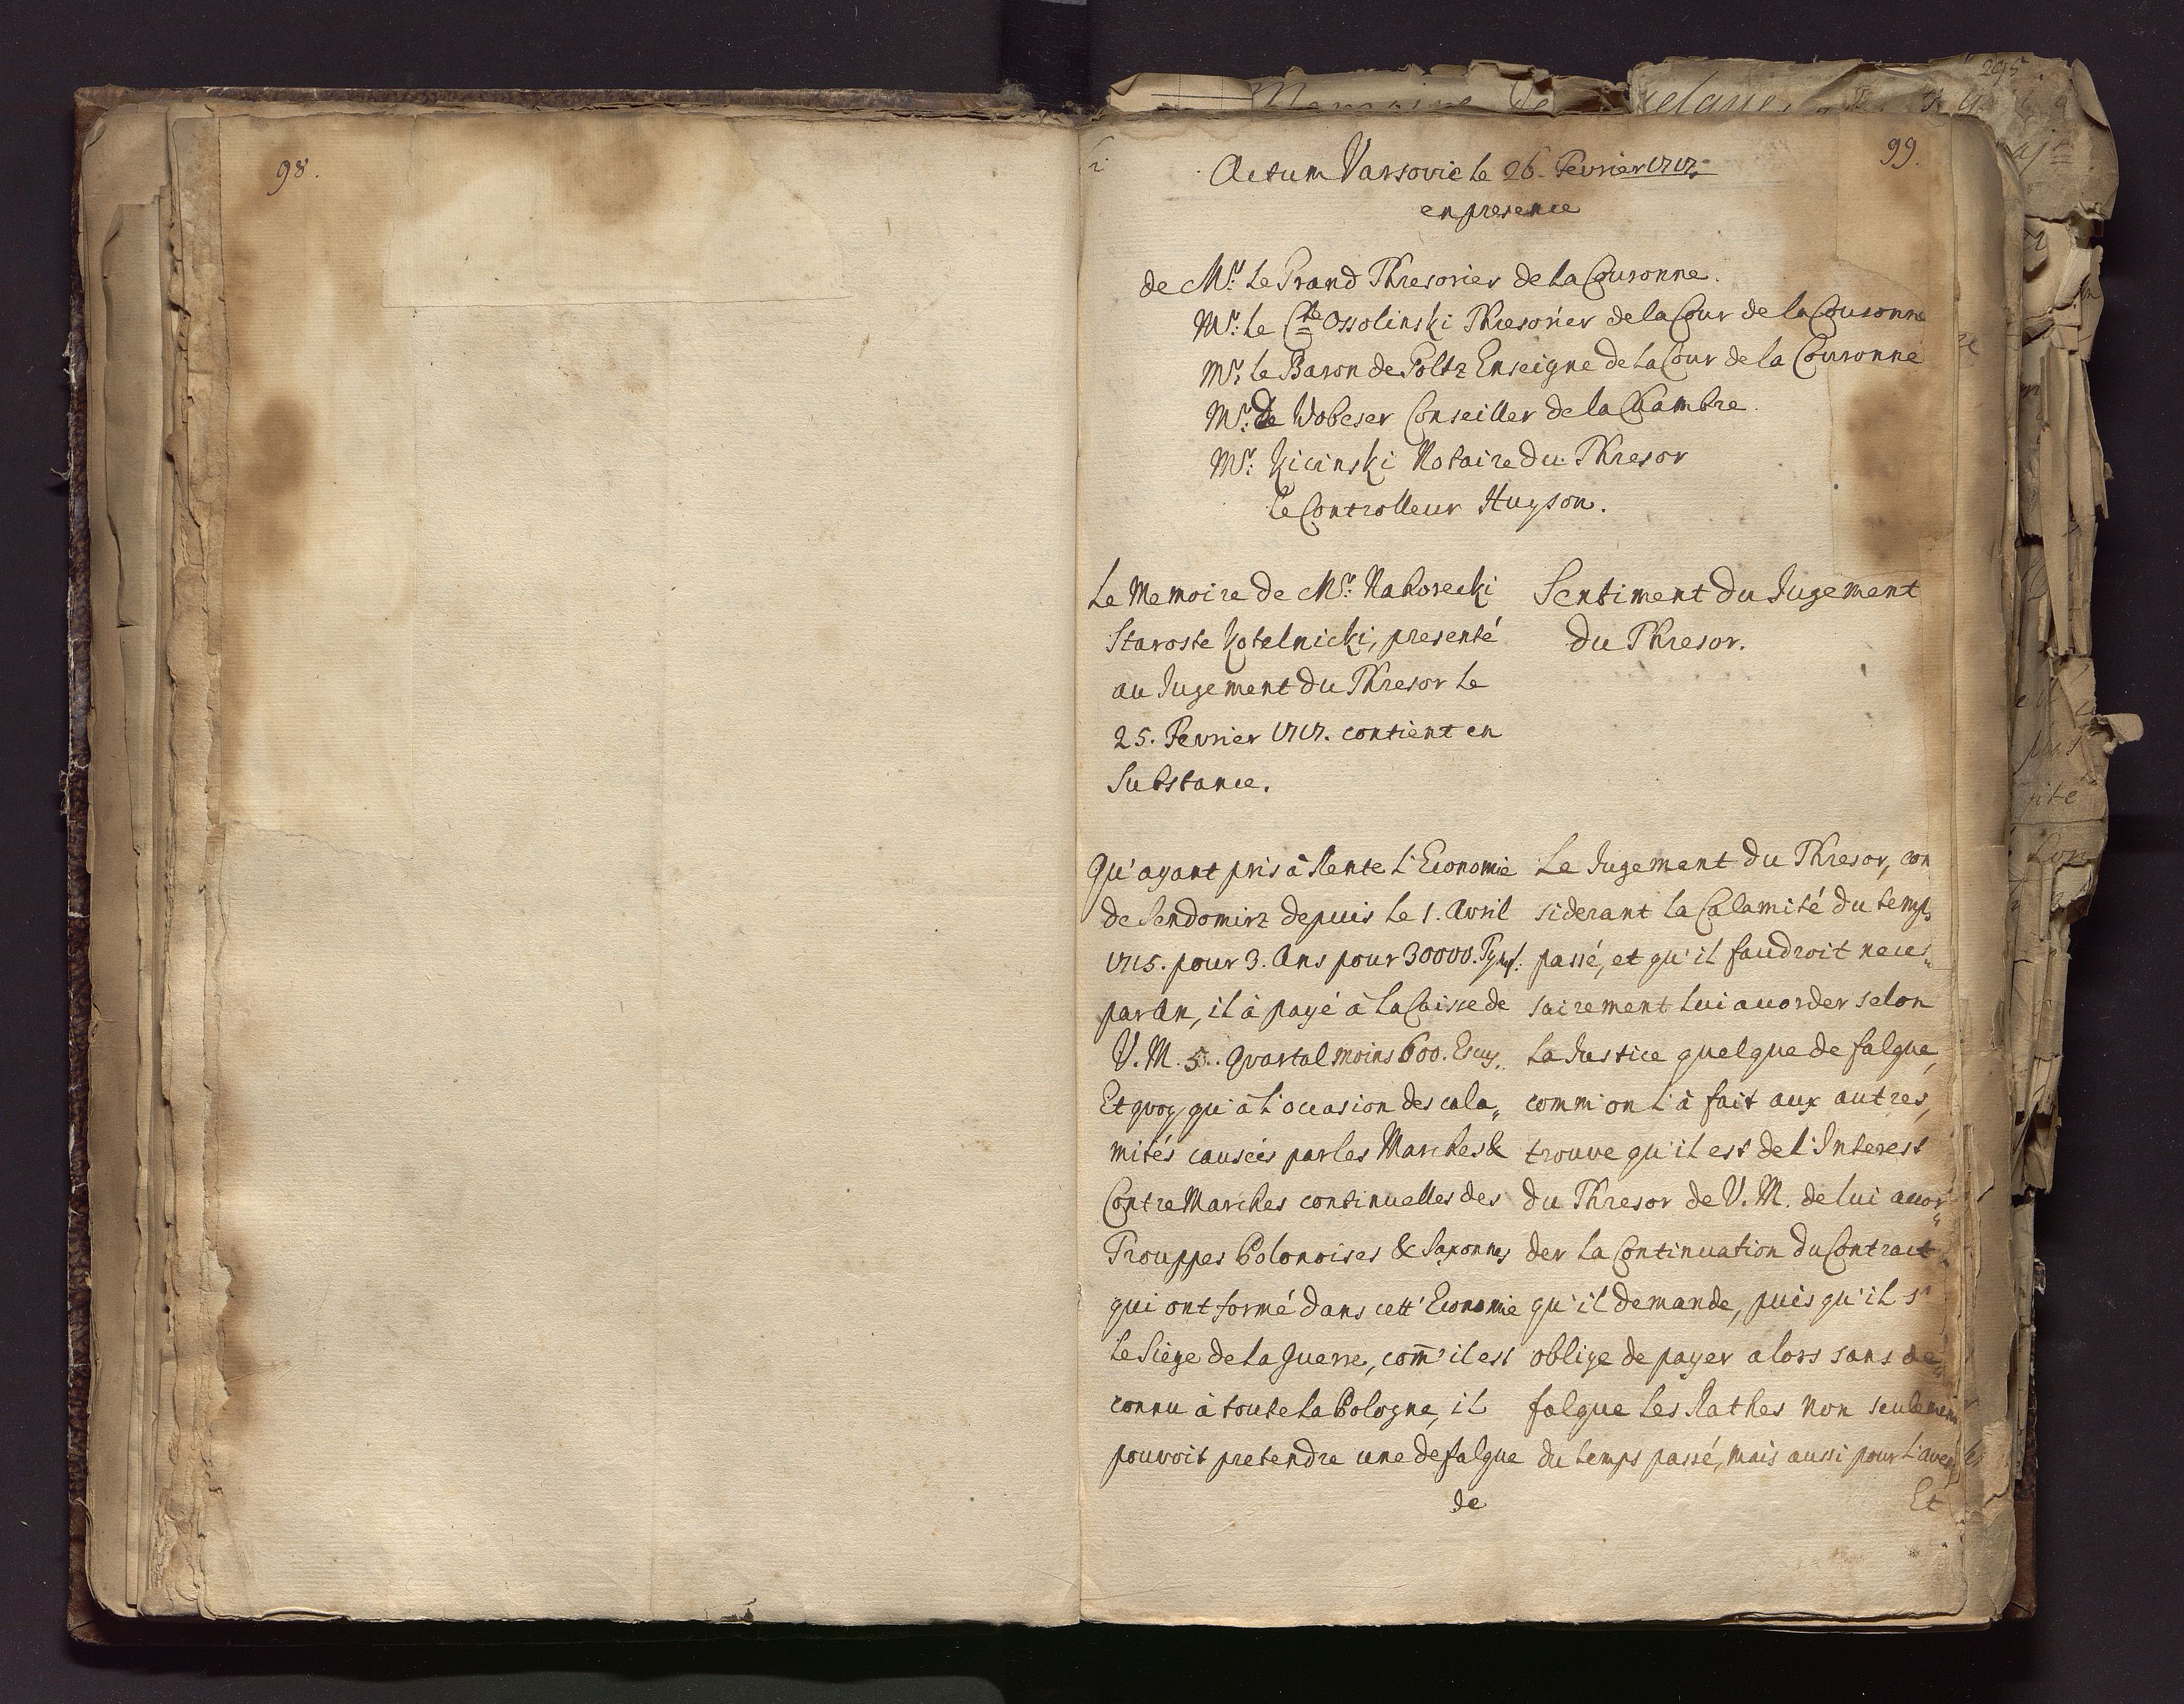 98.
99.
Actum Varsovie le 26. Fevrier 1717.
en presence
de Mr: Le Grand Thresorier de la Couronne.
Mr: le Cte Ossolinski Thresorier de la Cour de la Couronne
Mr: le Baron de Goltz Enseigne de la Cour de la Couronne
Mr: de Wobeser Conseiller de la Chambre.
Mr: Kicinski Notaire du Thresor
le Controlleur Huyson.
Le Memoire de Mr: Nakorecki
Staroste Kotelnicki, presenté
au Jugement du Thresor le
25. Fevrier 1717. contient en
Substance.
Sentiment du Jugement
du Thresor.
Qu'ayant pris à Rente l'Economie
de Sendomirz depuis le 1. Avril
1715. pour 3. Ans pour 30000. Tymf:
par An, il à payé à la Caisse de
V. M. 5. Quartal moins 600. Escus.
Et quoy qu'à l'occasion des cala„
mités causées par les Marches &
Contre Marches continuelles des
Trouppes Polonoises & Saxonnes
qui ont formé dans cett' Economie
le Siege de la Guerre, com̄' il est
connu à toute la Pologne, il
pouvoit pretendre une defalque
de
Le Jugement du Thresor, con
siderant la Calamité du temps
passé, et qu'il faudroit neces„
sairement lui accorder selon
la Justice quelque defalque,
comm' on l'à fait aux autres,
trouve qu'il est de l'Interest
du Thresor de V. M. de lui accor„
der la Continuation du Contract
qu'il demande, puis qu'il s'
oblige de payer alors sans de„
falque les Rathes non seulement
du temps passé, mais aussi pour l'aven
Et